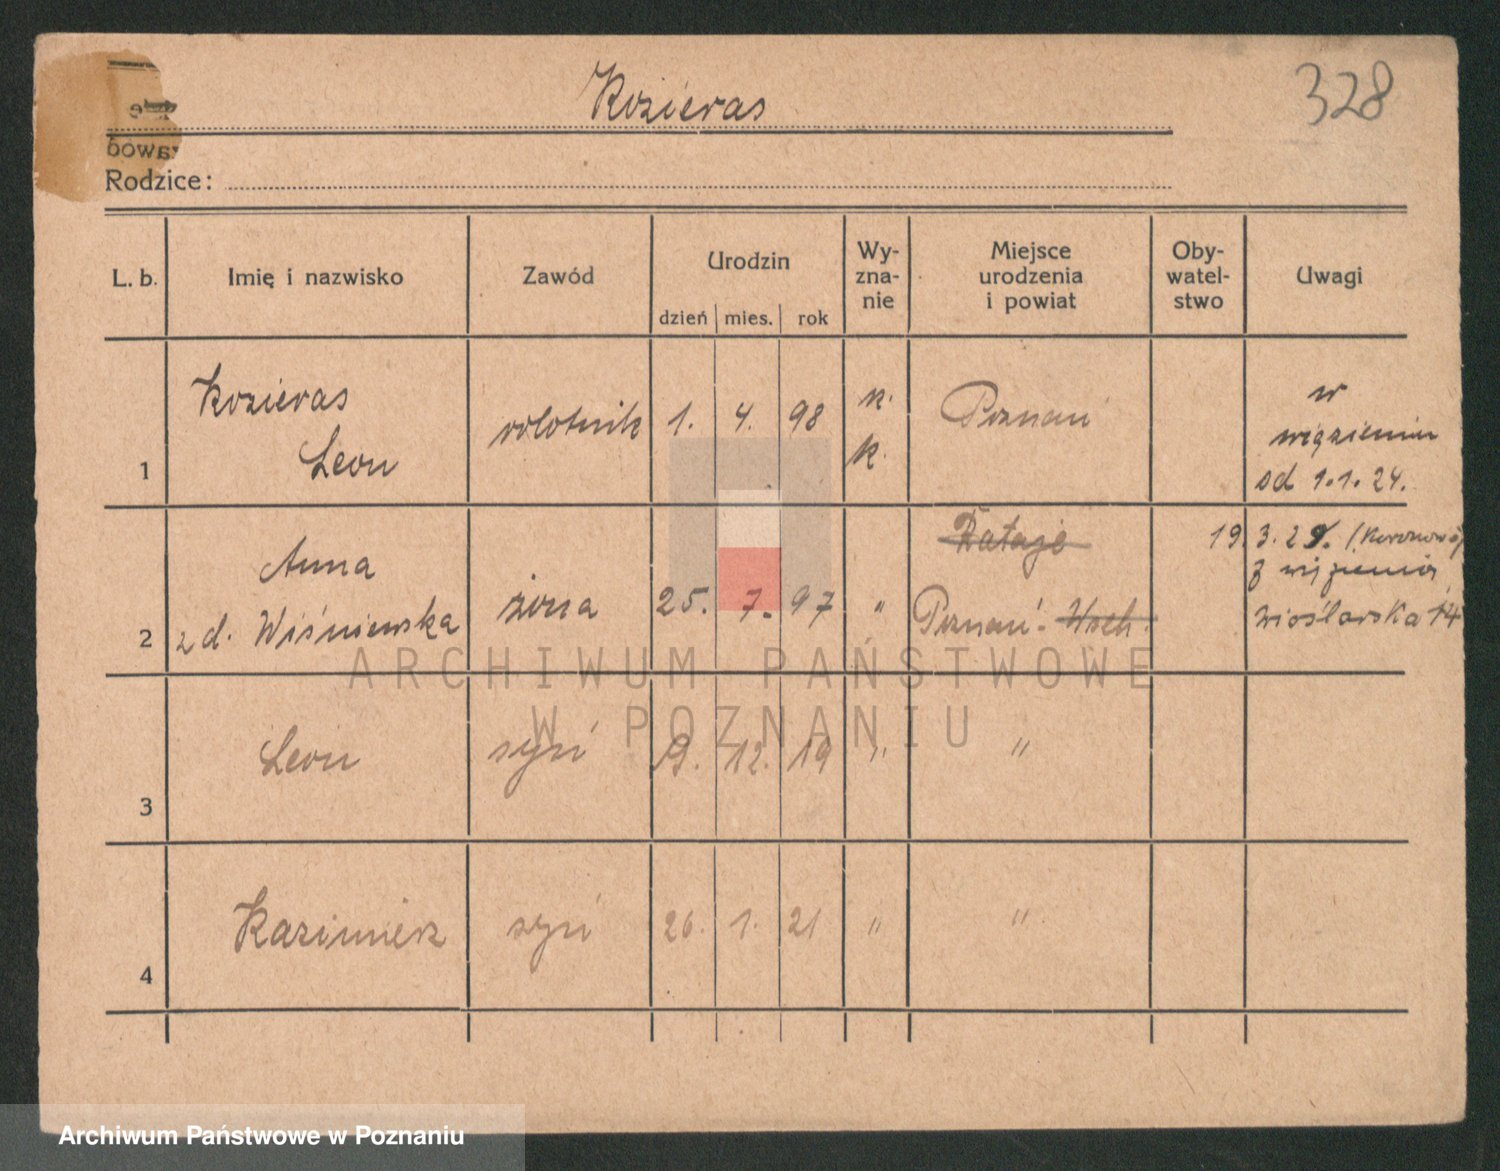 Kozieras
328
Rodzice:
L. b.
Imię i nazwisko
Zawód
Urodzin
dzień
mies.
rok
Wy-
zna-
nie
Miejsce
urodzenia
i powiat
Oby-
watel-
stwo
Uwagi
1
Kozieras
Leon
robotnik
1.
4.
98
r.
k.
Poznań
w
więzieniu
od 1.1.24.
2
Anna
z d. Wiśniewska
żona
25.
7.
97
"
Rataje
Poznań. Wsch.
19.3.29. (Koronowo)
z więzienia
Wioślarska 14
3
Leon
syn
19
12.
"
"
4
Kazimierz
syn
26.
1.
21
"
"
ARCHIWUM PAŃSTWOWE
W POZNANIU
Archiwum Państwowe w Poznaniu